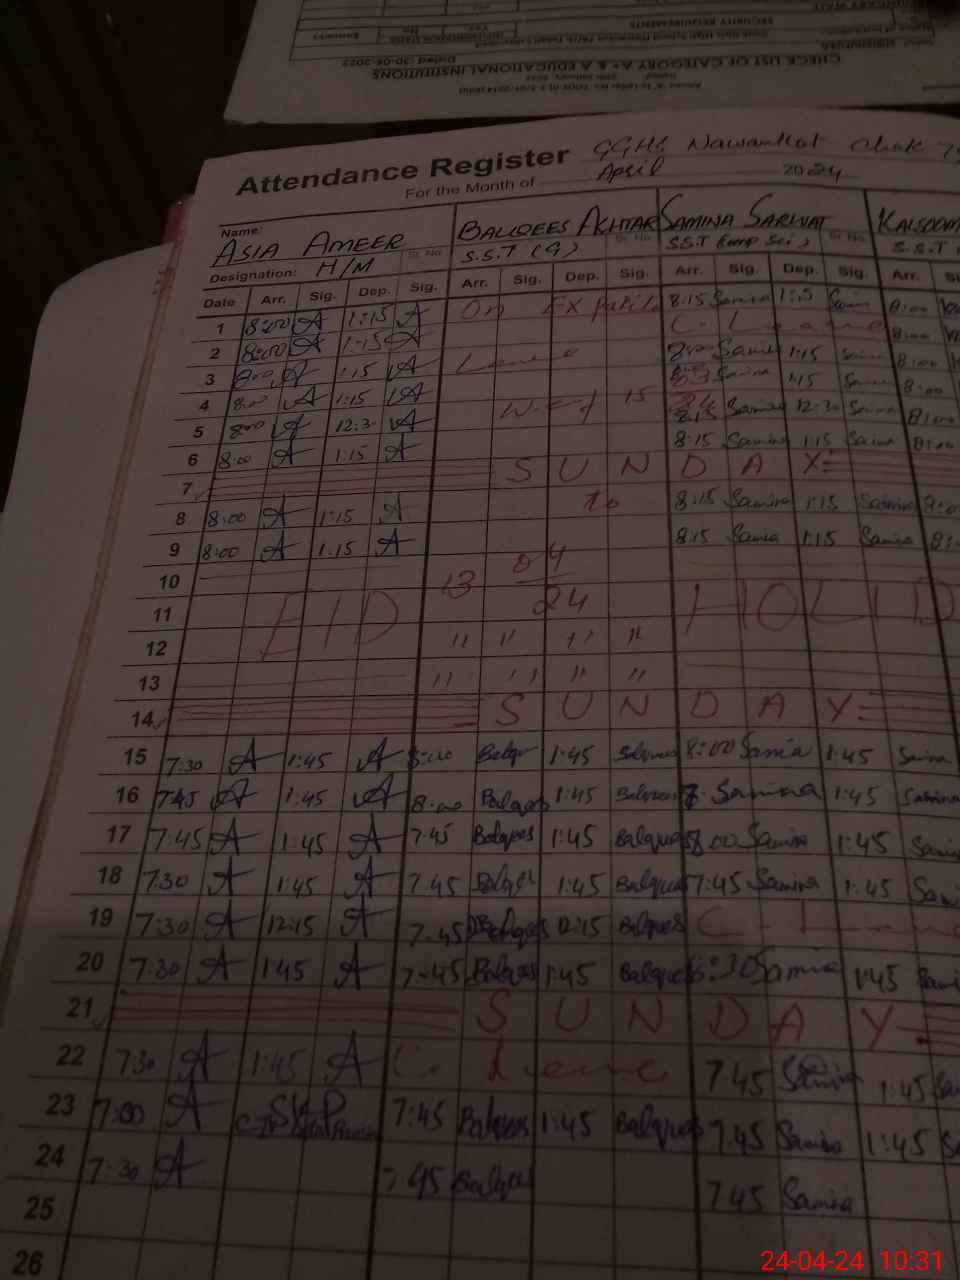 CHECK LIST OF CATEGORY A+ & A EDUCATIONAL INSTITUTIONS
Dated: 30-06-2023
SECURITY REQUIREMENTS
Yes No Remarks
Attendance Register GGHS Nawankot Chak
For the Month of April 2024
Name: ASIA AMEER BALQEES AKHTAR SAMINA SARWAT
Designation: H/M Sr. No. S.S.T (G) Sr. No. S.S.T (Comp Sci) Sr. No. S.S.T
Date Arr. Sig. Dep. Sig. Arr. Sig. Dep. Sig. Arr. Sig. Dep. Sig. Arr.
1 8:00 A 1:15 A On EX Pakis 8:15 Samina 1:15 Samina 8:00
2 8:00 A 1:15 A C. Leave 8:00
3 8:00 A 1:15 A Leave 8:00 Samina 1:15 Samina 8:00
4 8:00 A 1:15 A Samina 1:15 Samina 8:00
5 8:00 A 12:30 A w.e.f 15 8:15 Samina 12:30 Samina 8:00
6 8:00 A 1:15 A 8:15 Samina 1:15 Samina 8:00
7 SUNDAY
8 8:00 A 1:15 A to 8:15 Samina 1:15 Samina
9 8:00 A 1:15 A 8:15 Samina 1:15 Samina
10 13 04
11 EID 24 HOLID
12 " " " "
13 " " " "
14 SUNDAY
15 7:30 A 1:45 A 8:00 Balqees 1:45 Balqees 8:00 Samina 1:45 Samina
16 7:45 A 1:45 A 8:00 Balqees 1:45 Balqees 8 Samina 1:45 Samina
17 7:45 A 1:45 A 7:45 Balqees 1:45 Balqees 8:00 Samina 1:45 Samina
18 7:30 A 1:45 A 7:45 Balqees 1:45 Balqees 7:45 Samina 1:45 Sami
19 7:30 A 12:15 A 7:45 Balqees 12:15 Balqees C. Leave
20 7:30 A 1:45 A 7:45 Balqees 1:45 Balqees :30 Samina 1:45 Sami
21 SUNDAY
22 7:30 A 1:45 A C. Leave 7:45 Samina 1:45 Sa
23 7:00 A 7:45 Balqees 1:45 Balqees 7:45 Samina 1:45 S
24 7:30 A 7:45 Balqees 7:45 Samina
25
26
24-04-24 10:31